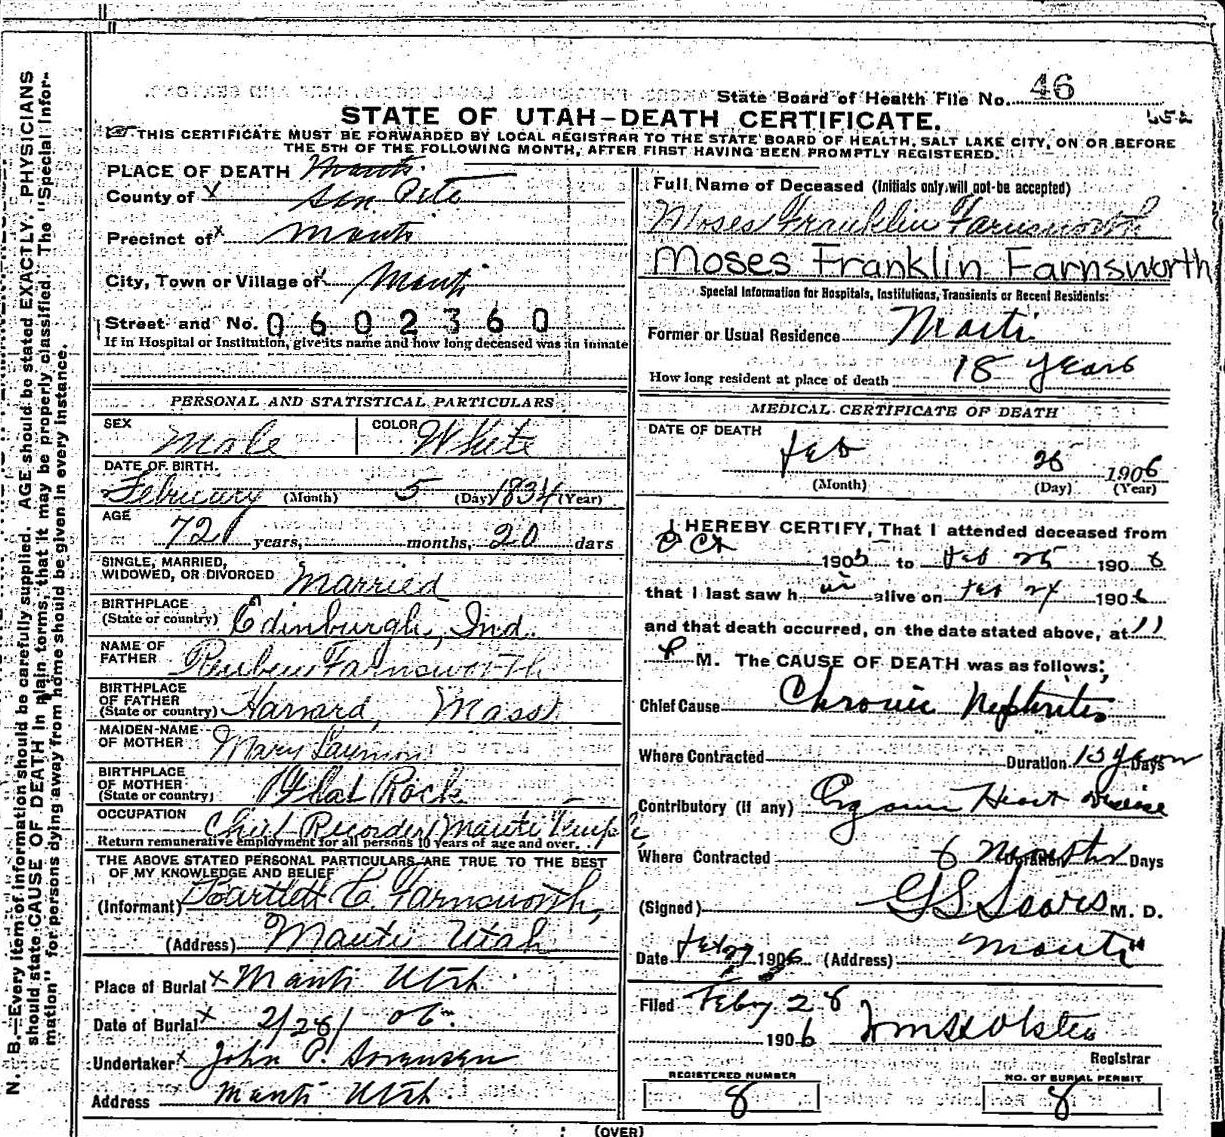 State Board of Health File No. 46
STATE OF UTAH–DEATH CERTIFICATE.
THIS CERTIFICATE MUST BE FORWARDED BY LOCAL REGISTRAR TO THE STATE BOARD OF HEALTH, SALT LAKE CITY, ON OR BEFORE
THE 5TH OF THE FOLLOWING MONTH, AFTER FIRST HAVING BEEN PROMPTLY REGISTERED.
N. B.—Every item of information should be carefully supplied. AGE should be stated EXACTLY. PHYSICIANS
should state CAUSE OF DEATH in plain terms, that it may be properly classified. The "Special Infor-
mation" for persons dying away from home should be given in every instance.
PLACE OF DEATH Manti
County of X San Pete
Precinct of X Manti
City, Town or Village of X Manti
Street and No. 0602360
If in Hospital or Institution, give its name and how long deceased was an inmate
PERSONAL AND STATISTICAL PARTICULARS
SEX Male COLOR White
DATE OF BIRTH.
February (Month) 5 (Day) 1834 (Year)
AGE
72 years, months, 20 days
SINGLE, MARRIED,
WIDOWED, OR DIVORCED Married
BIRTHPLACE
(State or country) Edinburgh, Ind.
NAME OF
FATHER Reuben Farnsworth
BIRTHPLACE
OF FATHER
(State or country) Harvard, Mass
MAIDEN-NAME
OF MOTHER Mary
BIRTHPLACE
OF MOTHER
(State or country) Flat Rock
OCCUPATION Chief Recorder Manti Temple
Return remunerative employment for all persons 10 years of age and over.
THE ABOVE STATED PERSONAL PARTICULARS ARE TRUE TO THE BEST
OF MY KNOWLEDGE AND BELIEF
(Informant) Bartlett E. Farnsworth,
(Address) Manti Utah
Place of Burial X Manti Utah.
Date of Burial X 2/28/06.
Undertaker X John P. Sorensen
Address Manti Utah.
Full Name of Deceased (Initials only will not be accepted)
Moses Franklin Farnsworth
Moses Franklin Farnsworth
Special Information for Hospitals, Institutions, Transients or Recent Residents:
Former or Usual Residence Manti
How long resident at place of death 18 years
MEDICAL CERTIFICATE OF DEATH
DATE OF DEATH
Feb 25 1906
(Month) (Day) (Year)
I HEREBY CERTIFY, That I attended deceased from
Oct 1905 to Feb 25 1906
that I last saw him alive on Feb 24 1906
and that death occurred, on the date stated above, at 11
P M. The CAUSE OF DEATH was as follows:
Chief Cause Chronic Nephritis
Where Contracted Duration Days
Contributory (if any) Organic Heart Disease
Where Contracted 6 Months Duration Days
(Signed) M. D.
Date Feb 27 1906 (Address) Manti
Filed Feby 28
1906
Registrar
REGISTERED NUMBER
8
NO. OF BURIAL PERMIT
8
(OVER)